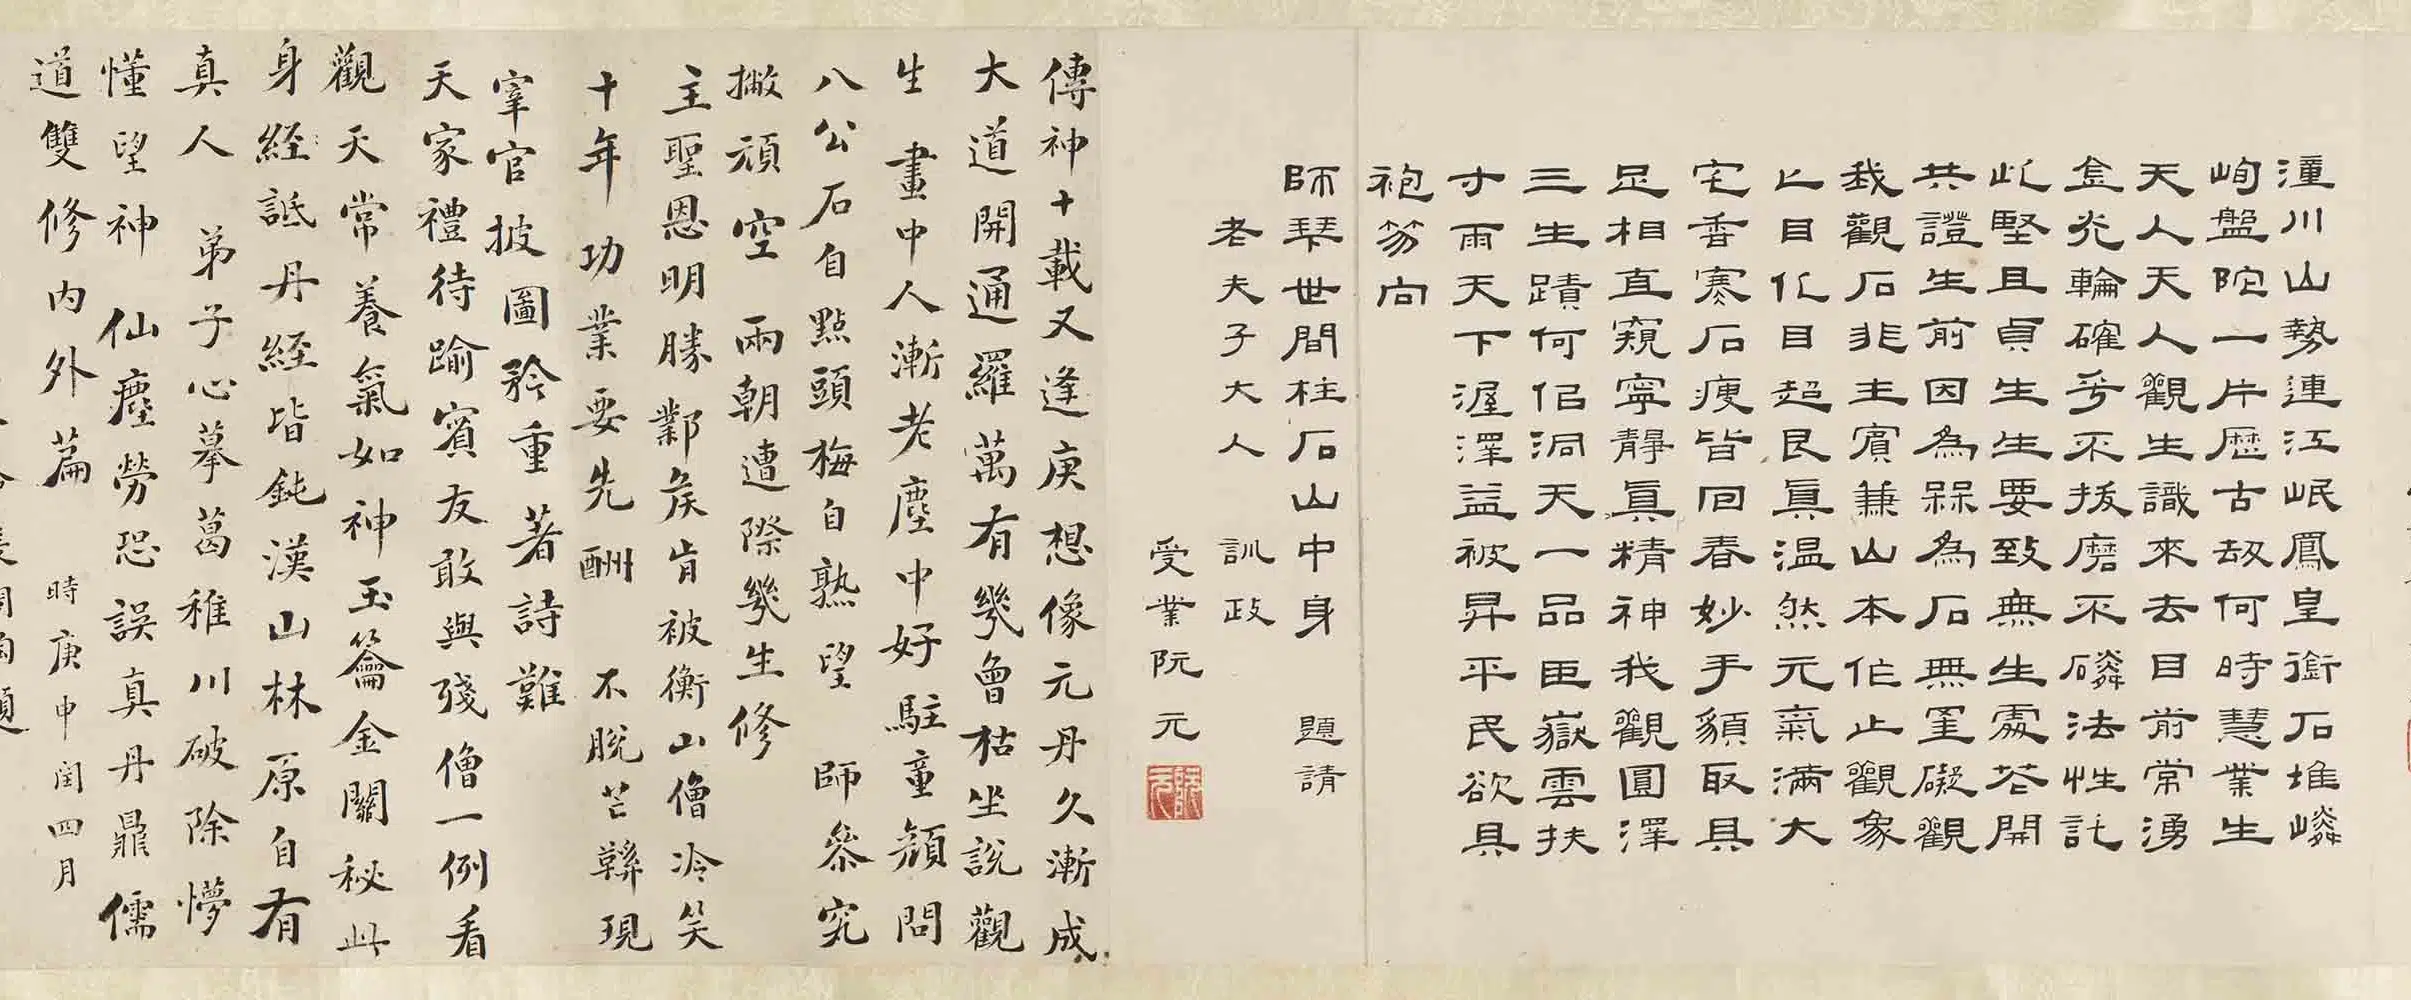 潼川山勢連江岷鳳皇銜石堆嶙
峋盤陀一片歷古劫何時慧業生
天人天人觀生識來去目前常湧
金光輪確乎不拔磨不磷法性託
此堅且貞生生要致無生處花開
共證生前因為槑為石無罣礙觀
我觀石非主賓兼山本作止觀象
上目化目超艮真温然元氣滿大
宅香寒石瘦皆回春妙手貌取具
足相直窺寧靜真精神我觀圓澤
三生蹟何侣洞天一品臣嶽雲扶
寸雨天下渥澤益被昇平民欲具
袍笏向
師琴世間柱石山中身 題請
老夫子大人 訓政
受業阮元
傳神十載又逢庚想像元丹久漸成
大道開通羅萬有幾曾枯坐說觀
生 畫中人漸老塵中好駐童顏問
八公石自點頭梅自熟望 師參究
撇頑空 兩朝遭際幾生修
主聖恩明勝鄴矦肯被衡山僧冷笑
十年功業要先酬 不脫芒鞵現
宰官披圖矜重著詩難
天家禮待踰賓友敢與殘僧一例看
觀天常養氣如神玉籥金關秘此
身經詆丹經皆鈍漢山林原自有
真人 弟子心摹葛稚川破除懜
懂望神 仙塵勞恐誤真丹鼎儒
道雙修內外篇 時庚申閏四月